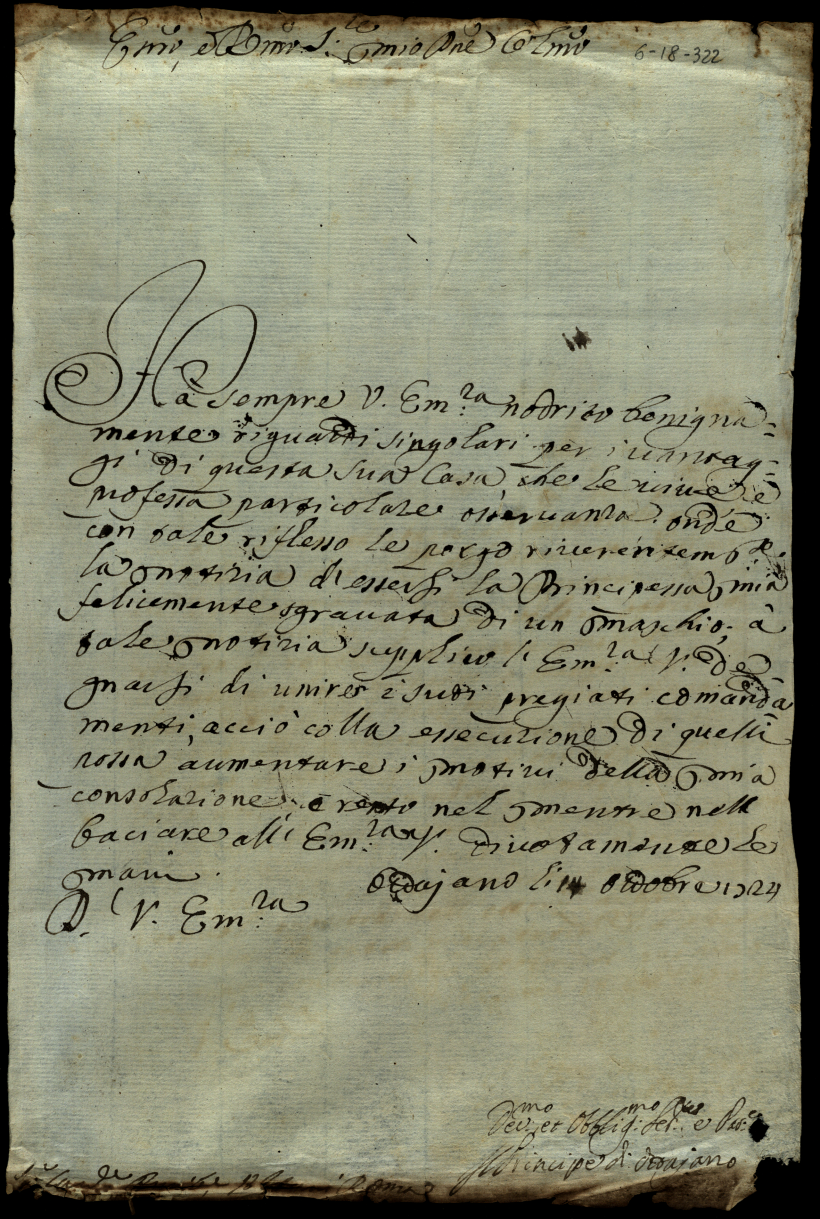 Emo, e Rmo S.re mio Pne Colmo
6-18-322
Hà sempre V. Em.ra nodrito benigna=
mente riguardi singolari per i uantag=
gi di questa sua Casa che le uiue, e
professa particolare osseruanza: onde
con tale riflesso le porgo riuerentem.te
la notizia di essersi la Principessa mia
felicemente sgrauata di un maschio; à
tale notizia supplico l'Em.ra V. de=
gnarsi di unire i suoi pregiati comanda
menti, acciò colla essecuzione di quelli
possa aumentare i motiui della mia
consolazione, e resto nel mentre nell
baciare all' Em.ra V. diuotamente le
mani.
Ottajano li 14 ottobre 1724
D. V. Em.ra
Deu.mo et Obblig.mo Ser.re e
Il Principe di Ottajano
Roma